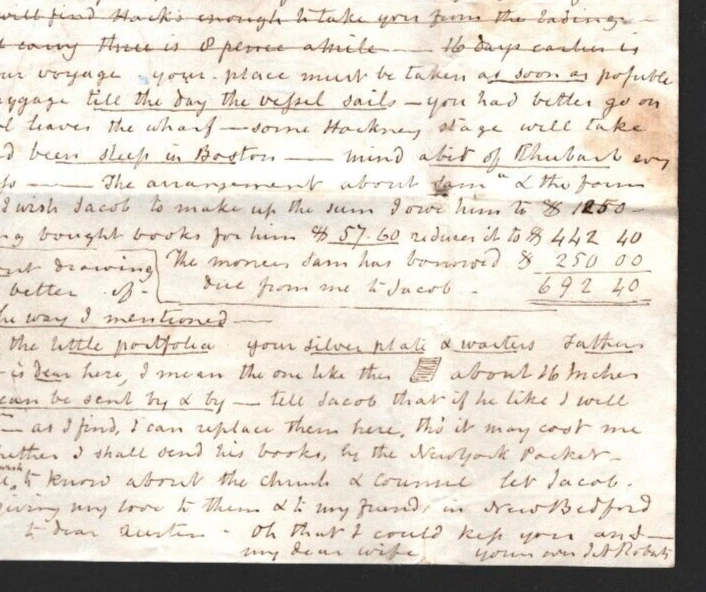 will find Hacks enough to take you from the Landing
carry there is 8 pence a mile — 16 days earlier is
voyage your place must be taken as soon as possible
luggage till the day the vessel sails — you had better go on
leaves the wharf — some Hackney stage will take
been sleep in Boston — mind a bit of Rhubarb
— The arrangement about Sam & the
I wish Jacob to make up the sum I owe him to $ 1250
bought books for him $ 57.60 reduces it to $ 442 40
drawing The money Sam has borrowed $ 250 00
better of due from me to Jacob - 692 40
the way I mentioned —
the little portfolio your silver plate & waiters Father
is dear here, I mean the one like this about 16 Inches
can be sent by & by — tell Jacob that if he like I will
— as I find, I can replace them here, tho' it may cost me
whether I shall send his books, by the New York Packet —
to know about the church & counsel let Jacob.
giving my love to them & to my friends in New Bedford
to dear - Oh that I could kiss you and
my dear wife yours ever